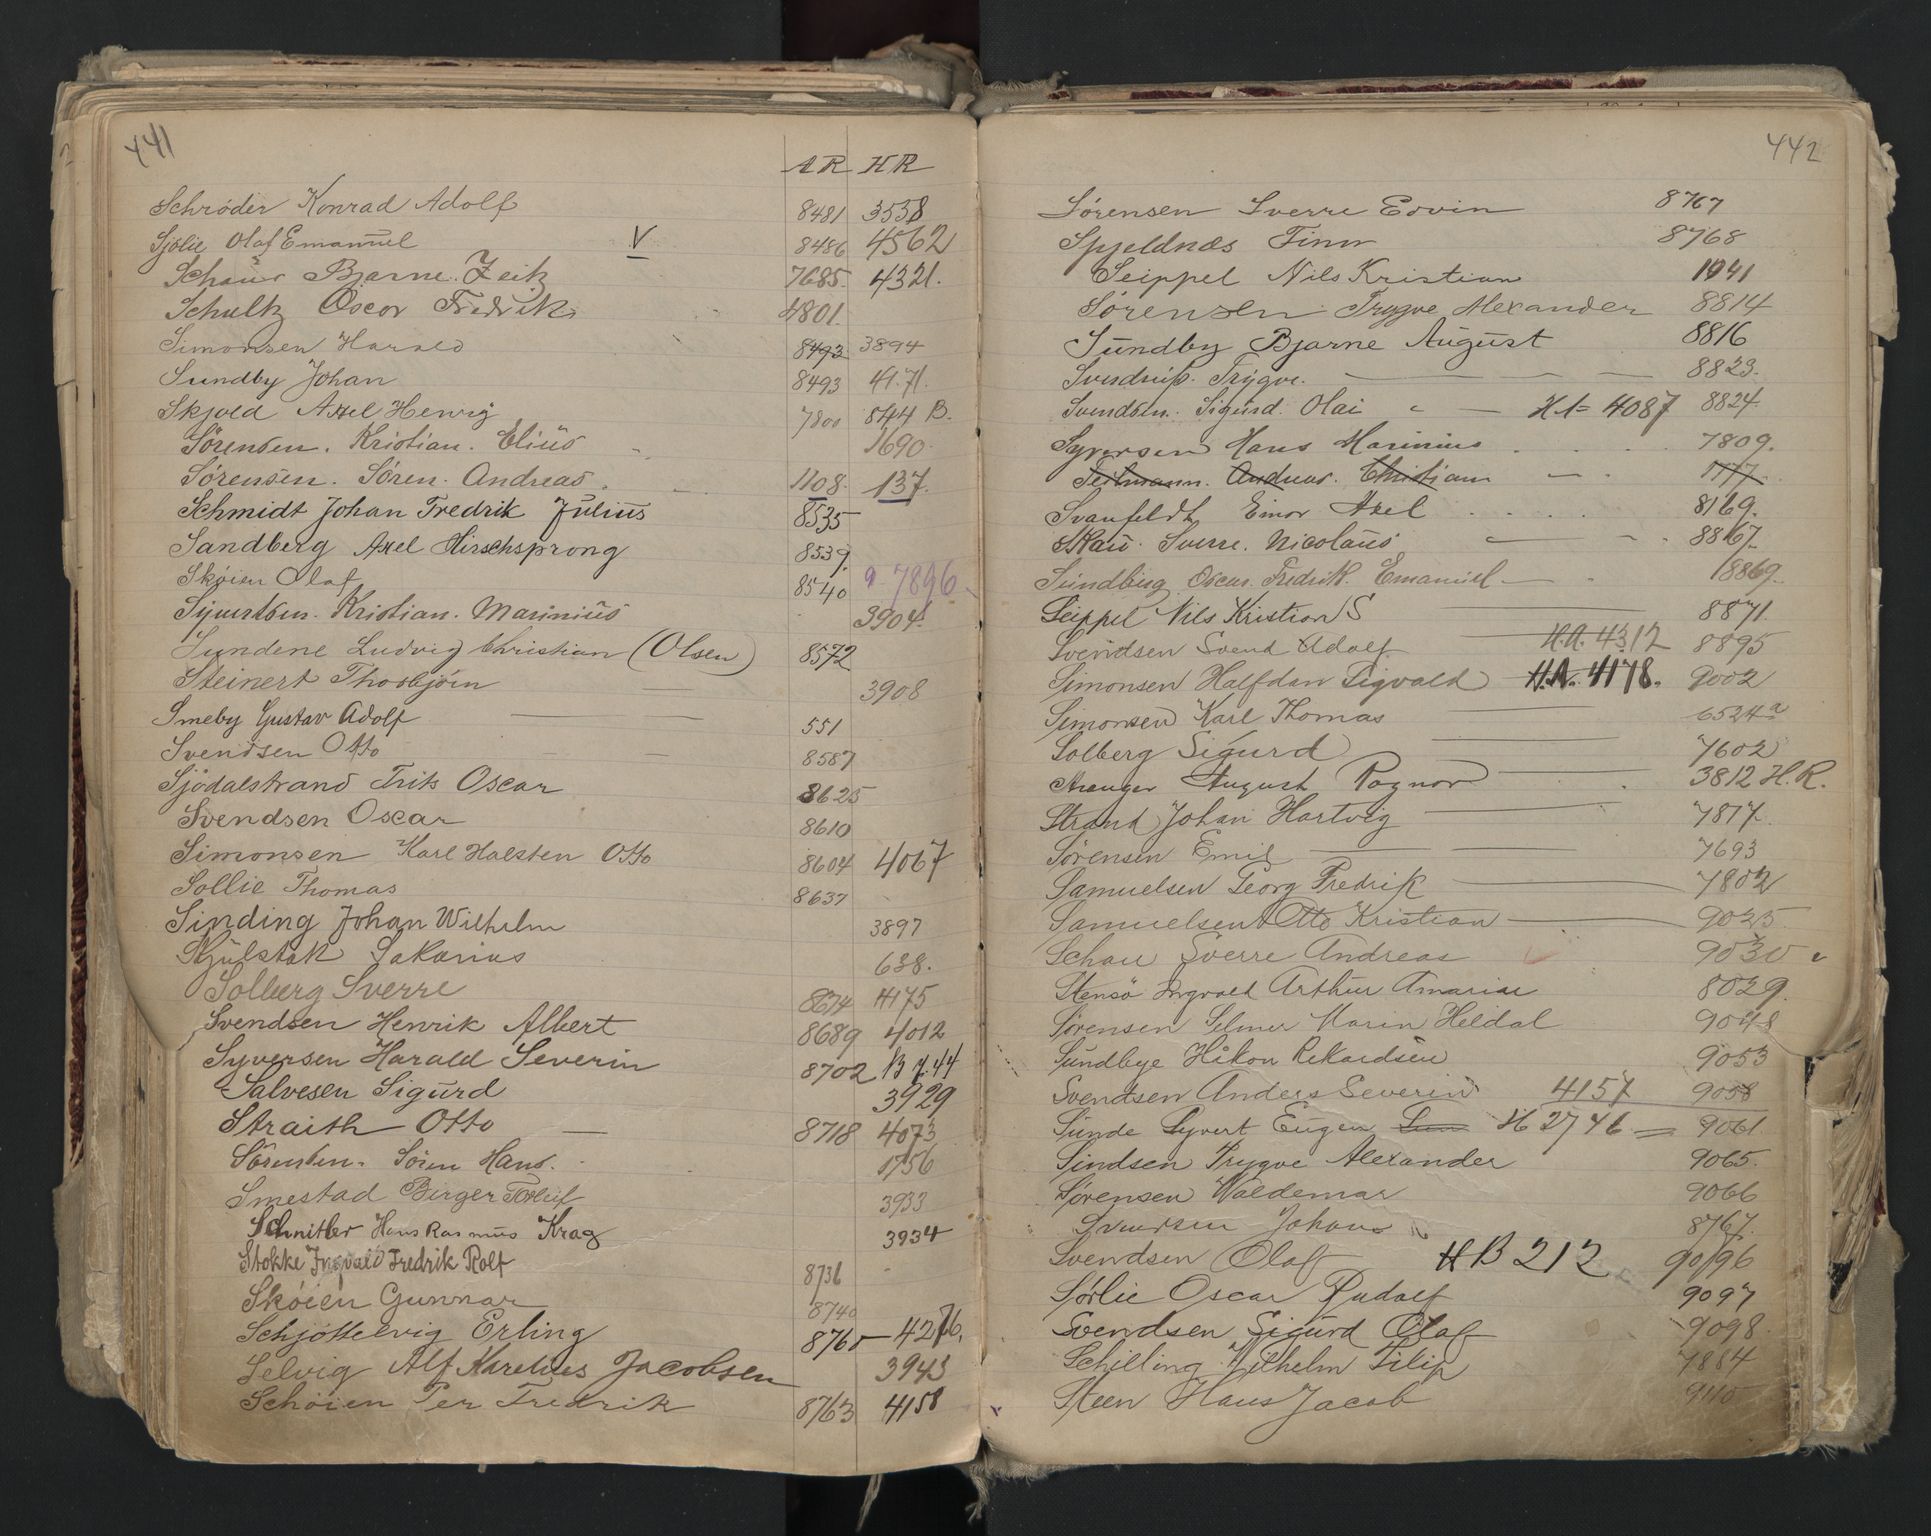 441
AR HR
Schröder Konrad Adolf 8481 3538
Sjölie Olaf Emanuel V 8486 4562
Schaur Bjarne Zeitz 7685 4321.
Schultz Oscar Fredrik 4801
Simonsen Harald 8493 3894
Sundby Johan 8493 4171.
Skjold Axel Henrig 7800 844 B.
Sörensen. Kristian. Eliüs 1690.
Sörensen. Sören. Andreas. 1108. 137.
Schmidt Johan Fredrik Julius 8535
Sandberg Axel Hirschsprong 8539.
Skøien Olaf 8540 7896
Syvertsen. Kristian. Marinius 3904.
Sundene Ludvig Christian (Olsen) 8572
Steinert Thorbjörn 3908
Smeby Gustav Adolf 551
Svendsen Otto 8587
Sjödalstrand Frits Oscar 8625
Svendsen Oscar 8610
Simonsen Karl Halsten Otto 8604 4067
Sollie Thomas 8637
Sinding Johan Wilhelm 3897
Sakarias 638.
Solberg Sverre 8674 4175
Svendsen Henrik Albert 8689 4012
Syversen Harald Severin 8702 B 7.44
Salvesen Sigurd 3929
Straith Otto 8718 4073
Sörensen. Sören Hans. 1756
Smestad Birger Torleif 3933
Schnitler Hans Rasmus Krag 3934
Stokke Ingvald Fredrik Rolf 8736
Skøien Gunnar 8740
Schjöttelvig Erling 8760 4276.
Selvig Alf Karelius Jacobsen 3943
Schøien Per Fredrik 8763 4158
442
Sörensen Sverre Edvin 8767
Spjeldnæs Finn 8768
Seippel Nils Kristian 1041
Sörensen Trygve Alexander 8814
Sundby Bjarne August 8816
Sverdrup. Trygve. 8823.
Svendsen. Sigurd. Olai HA= 4087 8824.
Syversen Hans Marinius 7809.
Seilmann. Andreas. Christian 1777.
Svanfeldt Einar Axel 8169.
Skau. Sverre. Nicolaüs 8867.
Sundbÿe Oscar. Fredrik. Emanuel 8869.
Seippel Nils Kristian S 8871.
Svendsen Svend Adolf H.A. 4312 8895
Simonsen Halfdan Sigvald H.A. 4178. 9002
Simonsen Karl Thomas 6524a
Solberg Sigurd 7602
Stranger August Ragnar 3812 H.R.
Strand Johan Hartvig 7817.
Sørensen Emil 7693
Samuelsen Georg Fredrik 7802
Samuelsen Otto Kristian 9025
Schau Sverre Andreas 9030
Stensö Ingvald Arthur Amarias 8029.
Sørensen Selmer Marin Heldal 9048
Sundbye Håkon Rikardsen 9053
Svendsen Anders Severin 4157 9058
Sunde Syvert Eugen Sun H 2746 9061.
Sindsen Trygve Alexander 9065.
Sørensen Waldemar 9066
Johans 8767.
Svendsen Olaf HB 212 9096
Sørlie Oscar Rudolf 9097
Svendsen Sigurd Olaf 9098
Schilling Wilhelm Filip 7884
Steen Hans Jacob 9110